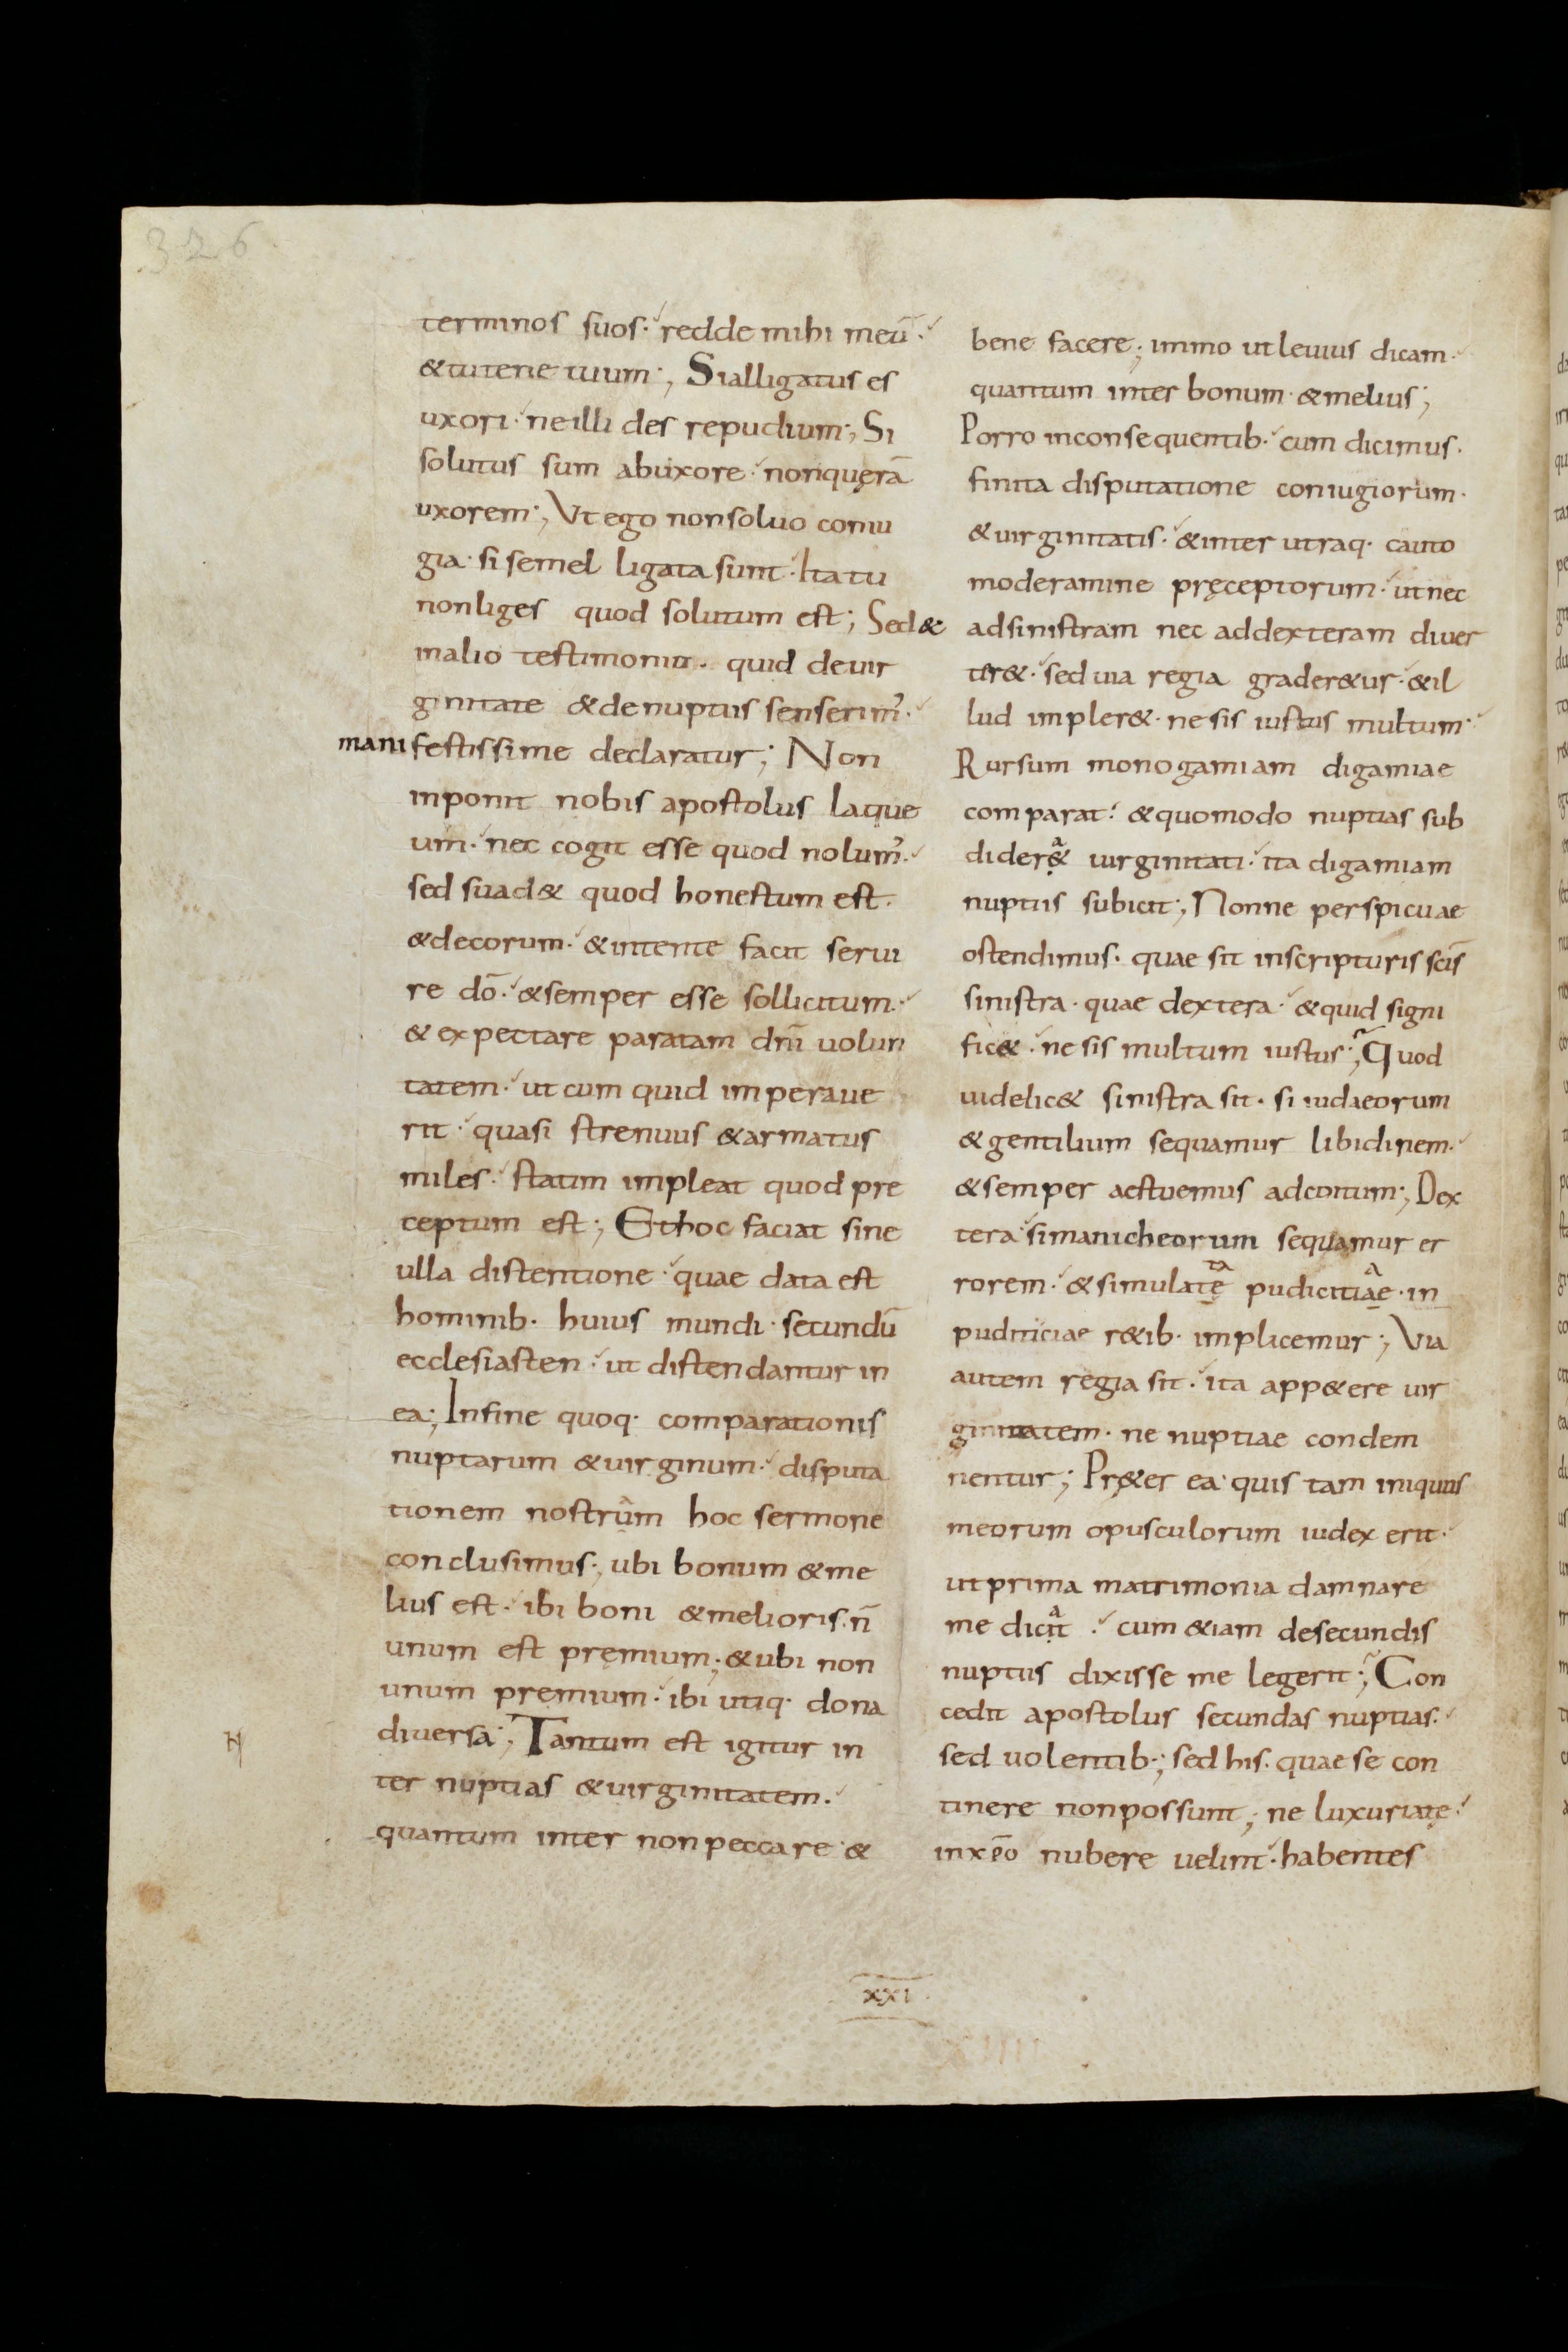 326
terminos suos· redde mihi meū·
& tu tene tuum·; Si alligatus es
uxori· ne illi des repudium·; Si
solutus sum ab uxore· non quęrā
uxorem·; Ut ego non soluo coniu
gia· si semel ligata sunt· Ita tu
non liges quod solutum est; Sed &
in alio testimonio· quid de uir
ginitate & de nuptiis senserim᾽·
manifestissime declaratur; Non
inponit nobis apostolus laque
um· nec cogit esse quod nolum᾽·
sed suad& quod honestum est·
& decorum· & intente facit serui
re dō· & semper esse sollicitum·
& expectare paratam dnī uolun
tatem· ut cum quid imperaue
rit· quasi strenuus & armatus
miles· statim impleat quod pre
ceptum est; Et hoc faciat sine
ulla distentione· quae data est
hominib· huius mundi· secundū
ecclesiasten· ut distendantur in
ea; In fine quoq· comparationis
nuptarum & uirginum· disputa
tionem nostrâm hoc sermone
conclusimus·, ubi bonum & me
lius est· ibi boni & melioris· n̄
unum est pręmium·; & ubi non
unum premium· ibi utiq· dona
diuersa·; Tantum est igitur in
ter nuptias & uirginitatem·
quantum inter non peccare· &
bene facere; immo ut leuius dicam·
quantum inter bonum· & melius;
Porro in consequentib· cum dicimus·
finita disputatione coniugiorum·
& uirginitatis· & inter utraq· cauto
moderamine pręceptorum· ut nec
ad sinistram nec ad dexteram diuer
ter&· sed uia regia grader&ur· & il
lud impler&· ne sis iustus multum·
Rursum monogamiam digamiae
comparat· & quomodo nuptias sub
dider& uirginitati· ita digamiam
nuptiis subicit·; Nonne perspicuae
ostendimus· quae sit in scripturis scīs
sinistra· quae dextera· & quid signi
fic&· ne sis multum iustus·; Quod
uidelic& sinistra sit· si iudaeorum
& gentilium sequamur libidinem·
& semper aestuemus ad coitum·; Dex
tera· si manicheorum sequamur er
rorem· & simulatę pudicitiae· in
pudiciciae r&ib· implicemur; Via
autem regia sit· ita app&ere uir
ginitatem· ne nuptiae condem
nentur; Pręt&er ea· quis tam iniquus
meorum opusculorum iudex erit·
ut prima matrimonia damnare
me dicat· cum &iam de secundis
nuptiis dixisse me legerit·; Con
cedit apostolus secundas nuptias·
sed uolentib·; sed his· quae se con
tinere non possunt·, ne luxuriatę·
in xp̄o nubere uelint· habentes
xxi